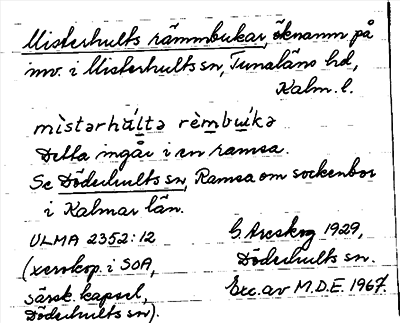 Misterhults rämmbukar, öknamn på
inv. i Misterhults sn, Tunaläns hd,
Kalm. l.
mìstərhúltə rèmbúkə
Detta ingår i en ramsa.
Se Döderhults sn, Ramsa om sockenbor
i Kalmar län.
ULMA 2352:12
(xerokop. i SOA,
särsk. kapsel,
Döderhults sn).
G Areskog 1929,
Döderhults sn.
Exc. av M.D.E. 1967.